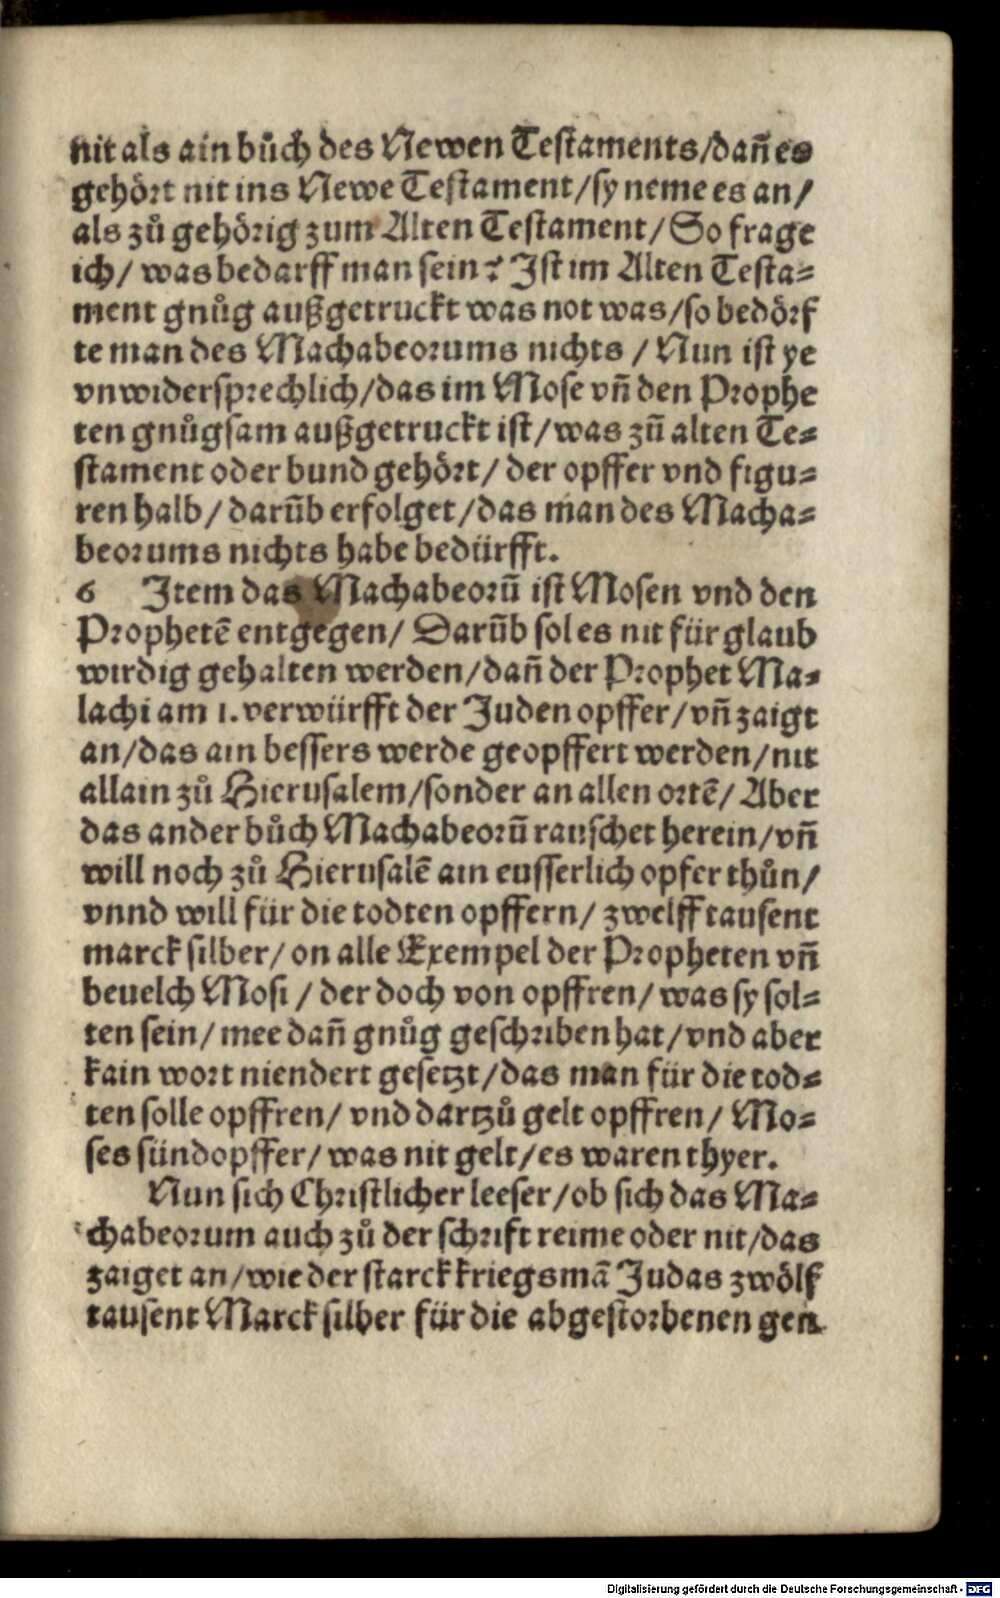 nit als ain bůch des Newen Testaments/dañ es
gehört nit ins Newe Testament/sy neme es an/
als zů gehörig zum Alten Testament/ So frage
ich/ was bedarff man sein? Ist im Alten Testa⸗
ment gnůg außgetruckt was not was/so bedörf
te man des Machabeorums nichts / Nun ist ye
vnwidersprechlich/das im Mose vñ den Prophe
ten gnůgsam außgetruckt ist/was zū alten Te⸗
stament oder bund gehört/ der opffer vnd figu⸗
ren halb/ darūb erfolget/das man des Macha⸗
beorums nichts habe bedürfft.
6 Item das Machabeorū ist Mosen vnd den
Prophetē entgegen/ Darūb sol es nit für glaub
wirdig gehalten werden/dañ der Prophet Ma⸗
lachi am 1. verwürfft der Juden opffer/vñ zaigt
an/das ain bessers werde geopffert werden/nit
allain zů Hierusalem/sonder an allen ortē/ Aber
das ander bůch Machabeorū rauschet herein/vñ
will noch zů Hierusalē ain eusserlich opfer thůn/
vnnd will für die todten opffern/ zwelff tausent
marck silber/ on alle Exempel der Propheten vñ
beuelch Mosi / der doch von opffren/ was sy sol⸗
ten sein/ mee dañ gnůg geschriben hat/vnd aber
kain wort niendert gesetzt/das man für die tod⸗
ten solle opffren/ vnd dartzů gelt opffren/ Mo⸗
ses sündopffer/ was nit gelt/es waren thyer.
Nun sich Christlicher leeser/ob sich das Ma⸗
chabeorum auch zů der schrift reime oder nit/das
zaiget an/wie der starck kriegsmā Judas zwölf
tausent Marck silber für die abgestorbenen gen
Digitalisierung gefördert durch die Deutsche Forschungsgemeinschaft - DFG